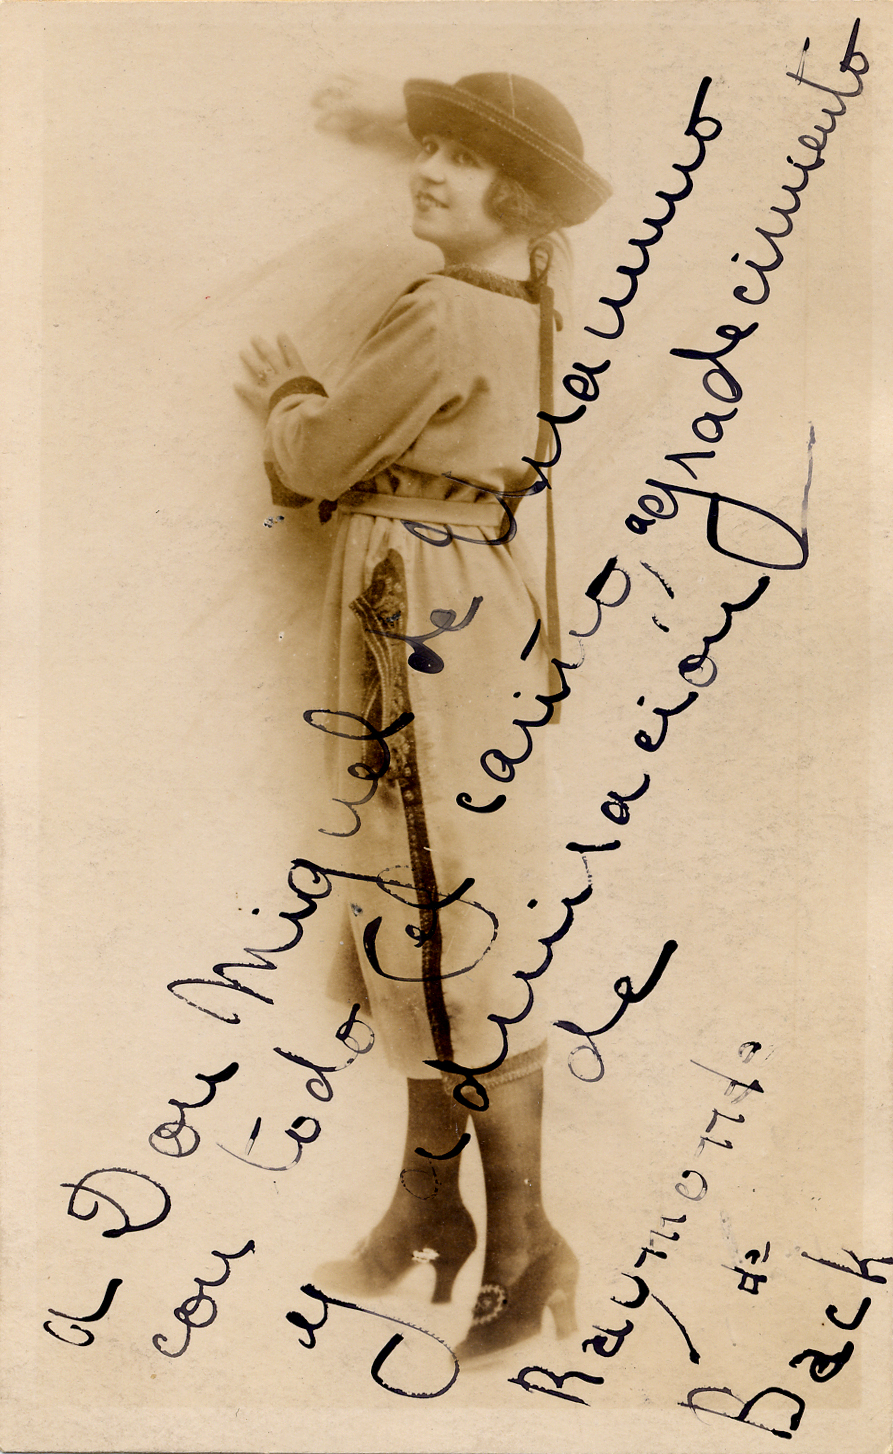 a Don Miguel de Unamuno
con todo el cariño, agradecimiento
y admiración
de
Raymonde
de
Back